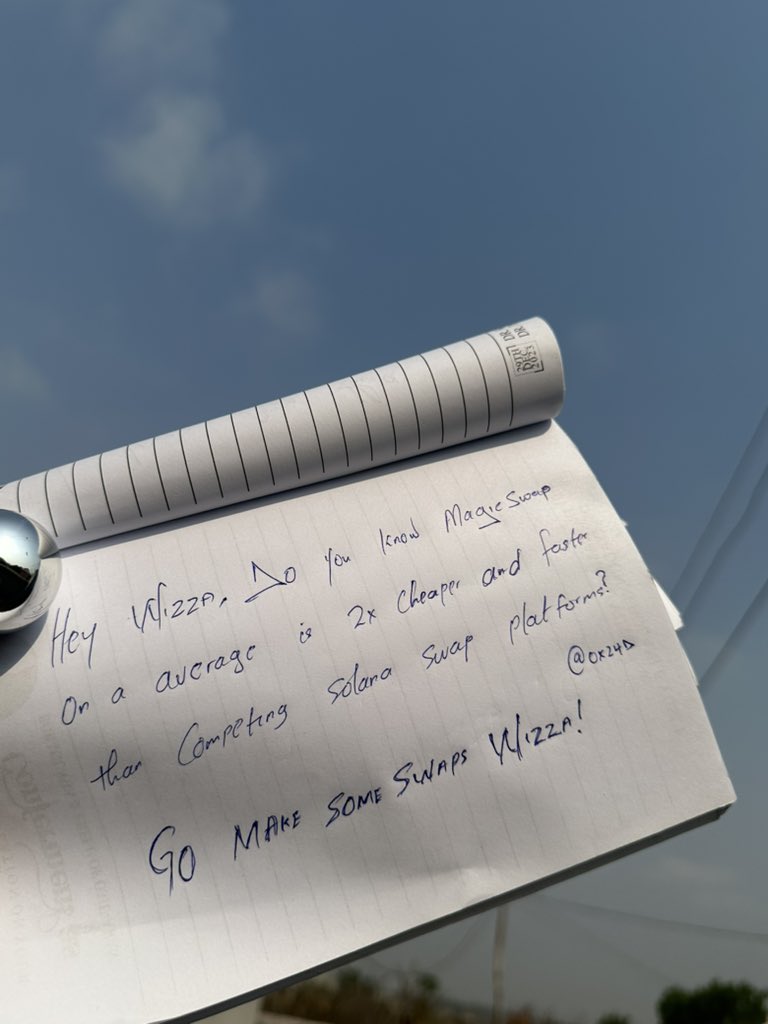 Hey Wizza, Do you know MagicSwap
On a average is 2x cheaper and faster
than Competing Solana swap platforms?
@0x24D
GO MAKE SOME SWAPS WIZZA!
DR
DR
29TH
DEC
2023